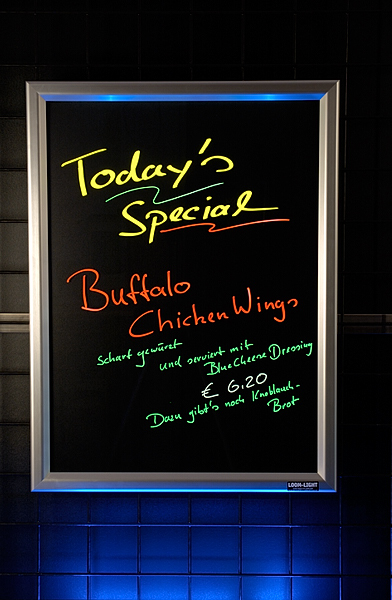 Today's
Special
Buffalo
Chicken Wings
scharf gewürzt
und serviert mit
Blue Cheese Dressing
€ 6.20
Dazu gibt's noch Knoblauch-
Brot
LOOK-LIGHT